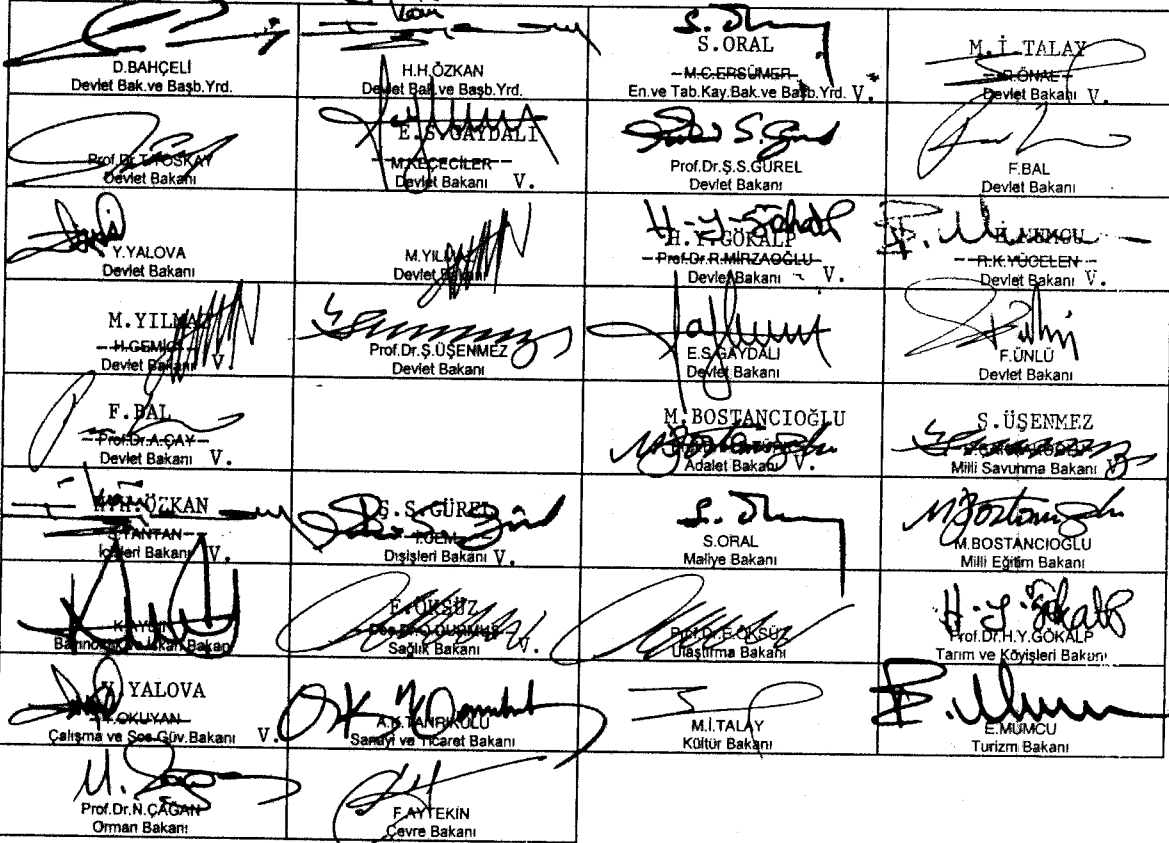 D.BAHÇELİ
Devlet Bak.ve Başb.Yrd.
H.H.ÖZKAN
Devlet Bak.ve Başb.Yrd.
S.ORAL
M.C.ERSÜMER
En.ve Tab.Kay.Bak.ve Başb.Yrd. V.
M.İ.TALAY
R.ÖNAL
Devlet Bakanı V.
Prof.Dr.T.TOSKAY
Devlet Bakanı
E.S.GAYDALI
M.KEÇECİLER
Devlet Bakanı V.
Prof.Dr.Ş.S.GÜREL
Devlet Bakanı
F.BAL
Devlet Bakanı
Y.YALOVA
Devlet Bakanı
M.YILMAZ
Devlet Bakanı
H.Y.GÖKALP
Prof.Dr.R.MİRZAOĞLU
Devlet Bakanı V.
E.MUMCU
R.K.YÜCELEN
Devlet Bakanı V.
M.YILMAZ
H.GEMİCİ
Devlet Bakanı V.
Prof.Dr.Ş.ÜŞENMEZ
Devlet Bakanı
E.S.GAYDALI
Devlet Bakanı
F.ÜNLÜ
Devlet Bakanı
F.BAL
Prof.Dr.A.ÇAY
Devlet Bakanı V.
M.BOSTANCIOĞLU
Adalet Bakanı V.
S.ÜŞENMEZ
Milli Savunma Bakanı V.
H.H.ÖZKAN
S.TANTAN
İçişleri Bakanı V.
Ş.S.GÜREL
İ.CEM
Dışişleri Bakanı V.
S.ORAL
Maliye Bakanı
M.BOSTANCIOĞLU
Milli Eğitim Bakanı
K.AYDIN
Bayındırlık ve İskan Bakanı
E.ÖKSÜZ
Doç.Dr.O.DURMUŞ
Sağlık Bakanı V.
Prof.Dr.E.ÖKSÜZ
Ulaştırma Bakanı
Prof.Dr.H.Y.GÖKALP
Tarım ve Köyişleri Bakanı
Y.YALOVA
Y.OKUYAN
Çalışma ve Sos.Güv.Bakanı V.
A.K.TANRIKULU
Sanayi ve Ticaret Bakanı
M.İ.TALAY
Kültür Bakanı
E.MUMCU
Turizm Bakanı
Prof.Dr.N.ÇAĞAN
Orman Bakanı
F.AYTEKİN
Çevre Bakanı